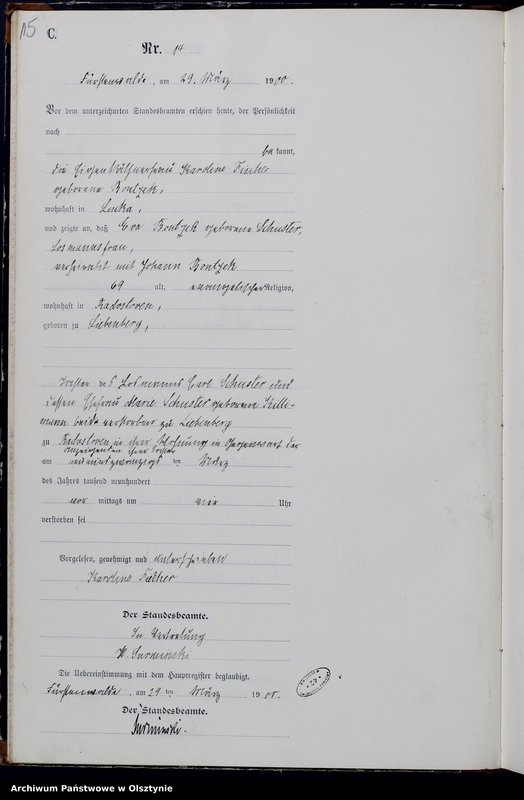 15
C.
Nr. 14
Fürstenwalde, am 29. März 1900.
Vor dem unterzeichneten Standesbeamten erschien heute, der Persönlichkeit
nach
be kannt,
die Eigenkäthnerfrau Karoline Fischer
geborene Bontzek,
wohnhaft in Lucka,
und zeigte an, daß Eva Bontzek geborene Schuster,
Losmannsfrau,
verheirathet mit Johann Bontzek
69 alt, evangelischer Religion,
wohnhaft in Radostowen,
geboren zu Liebenberg,
Tochter des Losmanns Carl Schuster und
dessen Ehefrau Marie Schuster geborenen
beide verstorben zu Liebenberg
zu Radostowen in ihrer Wohnung in Gegenwart der
Anzeigenden ihrer Tochter
am neunundzwanzigst ten März
des Jahres tausend neunhundert
vor mittags um vier Uhr
verstorben sei
Vorgelesen, genehmigt und unterschrieben
Karoline Fischer
Der Standesbeamte.
In Vertretung
Surminski
Die Uebereinstimmung mit dem Hauptregister beglaubigt.
Fürstenwalde, am 29 ten März 1900.
Der Standesbeamte.
Surminski.
Archiwum Państwowe w Olsztynie